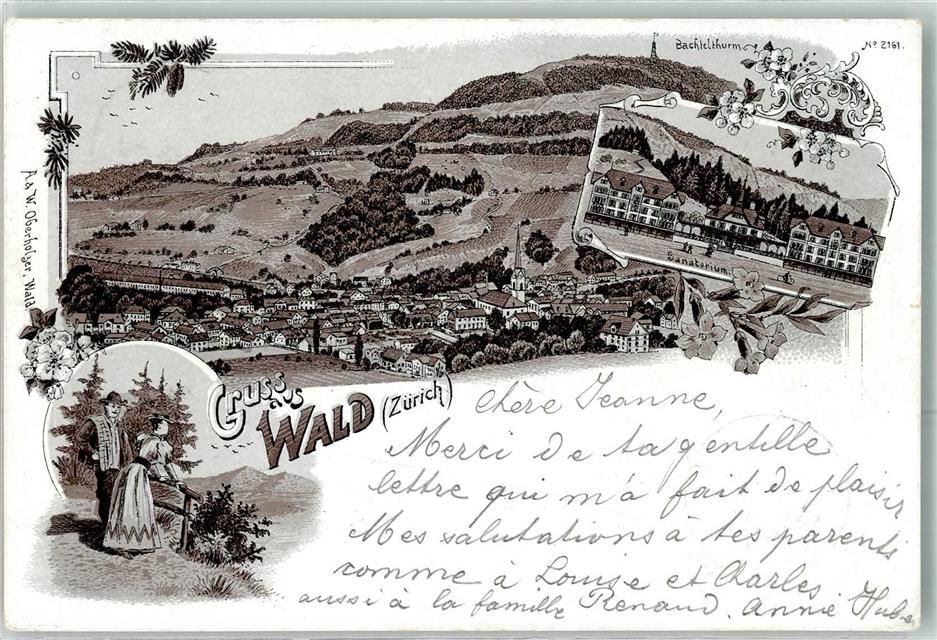 Bachtelthurm
No. 2161.
Sanatorium.
F. & W. Oberholzer, Wald
Gruss
aus
WALD (Zürich)
Chère Jeanne,
Merci de ta gentille
lettre qui m'a fait de plaisir
Mes salutations à tes parents
comme à Louise et Charles
aussi à la famille Renaud. Annie